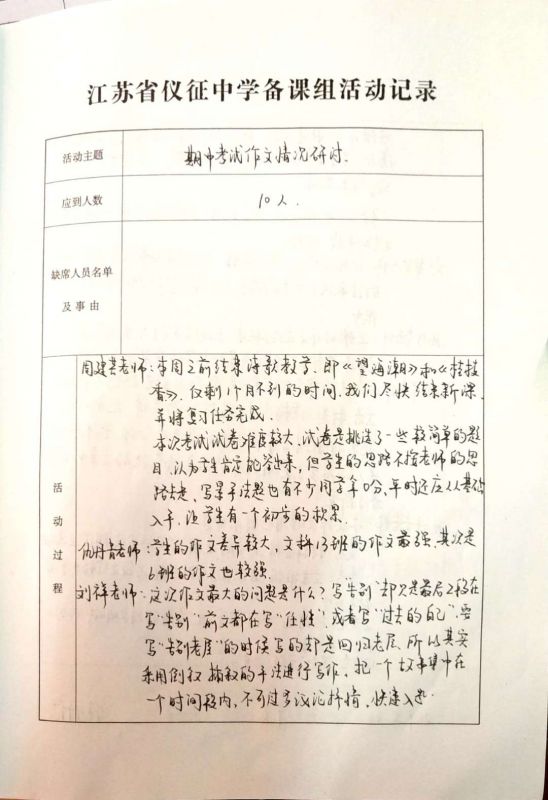 江苏省仪征中学备课组活动记录
活动主题
期中考试作文情况研讨.
应到人数
10人.
缺席人员名单
及事由
活动过程
周建其老师:本周之前结束诗歌教学.即《望海潮》和《桂枝
香》.仅剩1个月不到的时间.我们尽快结束新课.
并将复习任务完成.
本次考试试卷难度较大,试卷是挑选了一些较简单的题
目.认为学生肯定能答出来,但学生的思路不按老师的思
路去走,写景手法题也有不少同学年0分,平时还应从基础
入手,让学生有一个初步的积累.
丹青老师:学生的作文差异较大,文科13班的作文最强.其次是
6班的作文也较强.
刘祥老师:这次作文最大的问题是什么?写“告别”却只是最后2段在
写“告别”前文都在写“任性”.或者写“过去的自己”.要
写“告别老屋”的时候写的却是回归老屋.所以其实
采用倒叙 插叙的手法进行写作.把一个故事集中在
一个时间段内,不可过多议论抒情.快速入题.